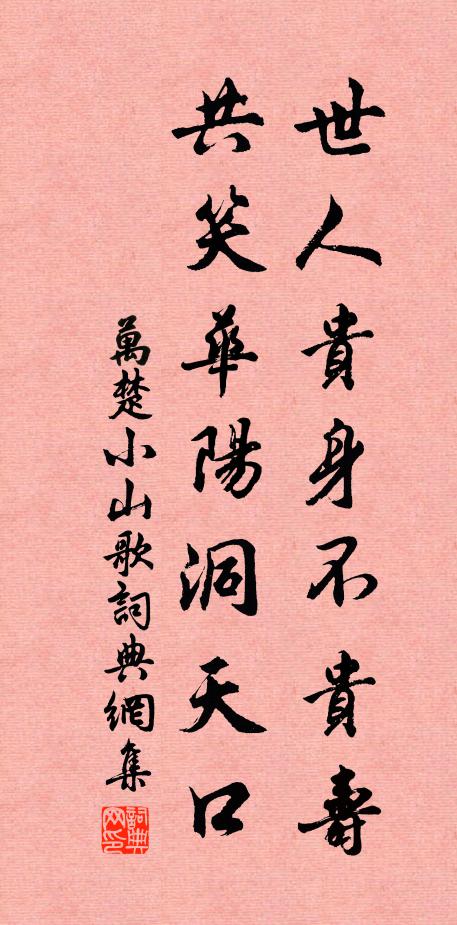 世人貴身不貴壽
共笑華陽洞天口
萬楚小山歌詞典網集
詞典網印